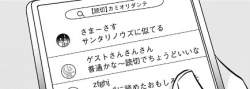 【読切】カミオリダンテ
さまーさす
サンタリノウズに似てる
ゲストさんさんさん
普通かな～読切でちょうどいいな
zfghj